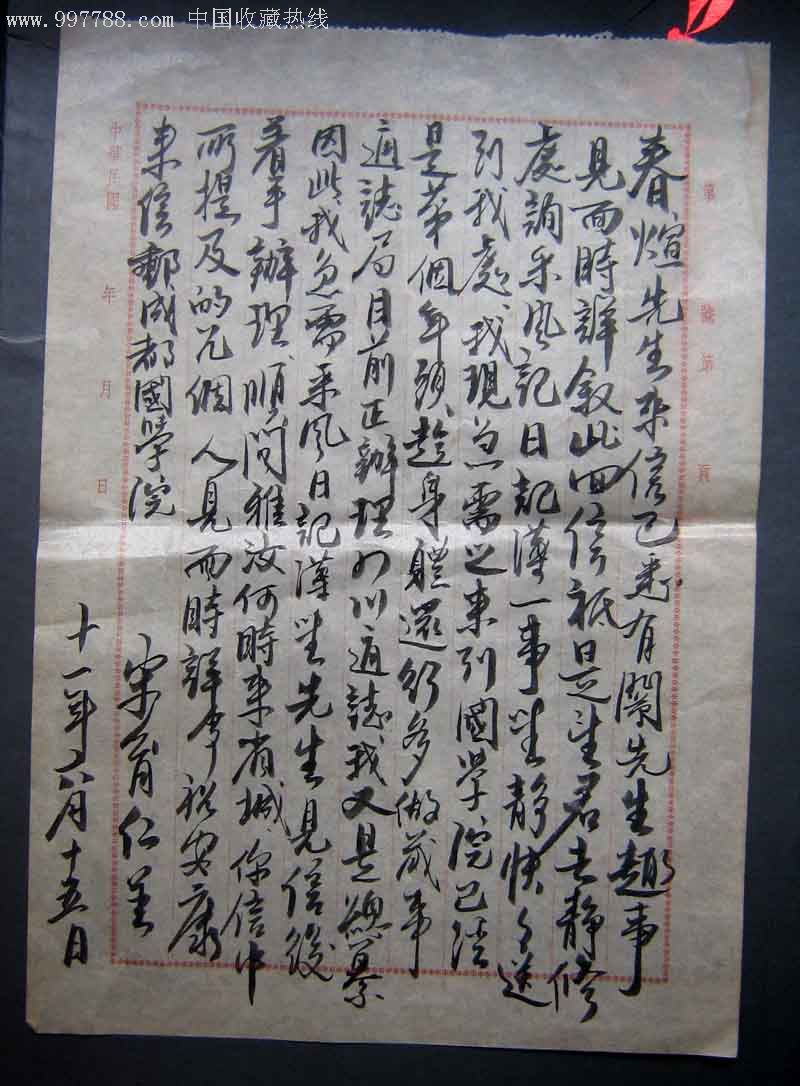 www.997788.com 中国收藏热线
第 號 第 頁
春煊先生來信已悉有關先生趣事
見面時詳叙此回信祇是望君去静修
處詢采風記日記薄一事望静快々送
到我處我現急需之來到國学院已經
是第個年頭趁身體還行多做幾事
通誌局目前正辦理四川通誌我又是總纂
因此我急需采風日記薄望先生見信後
着手辦理順問雅汝何時來省城你信中
所提及的几個人見面時詳述祝安康
來信郵成都國学院
宋育仁筆
十一年六月十五日
中華民國 年 月 日